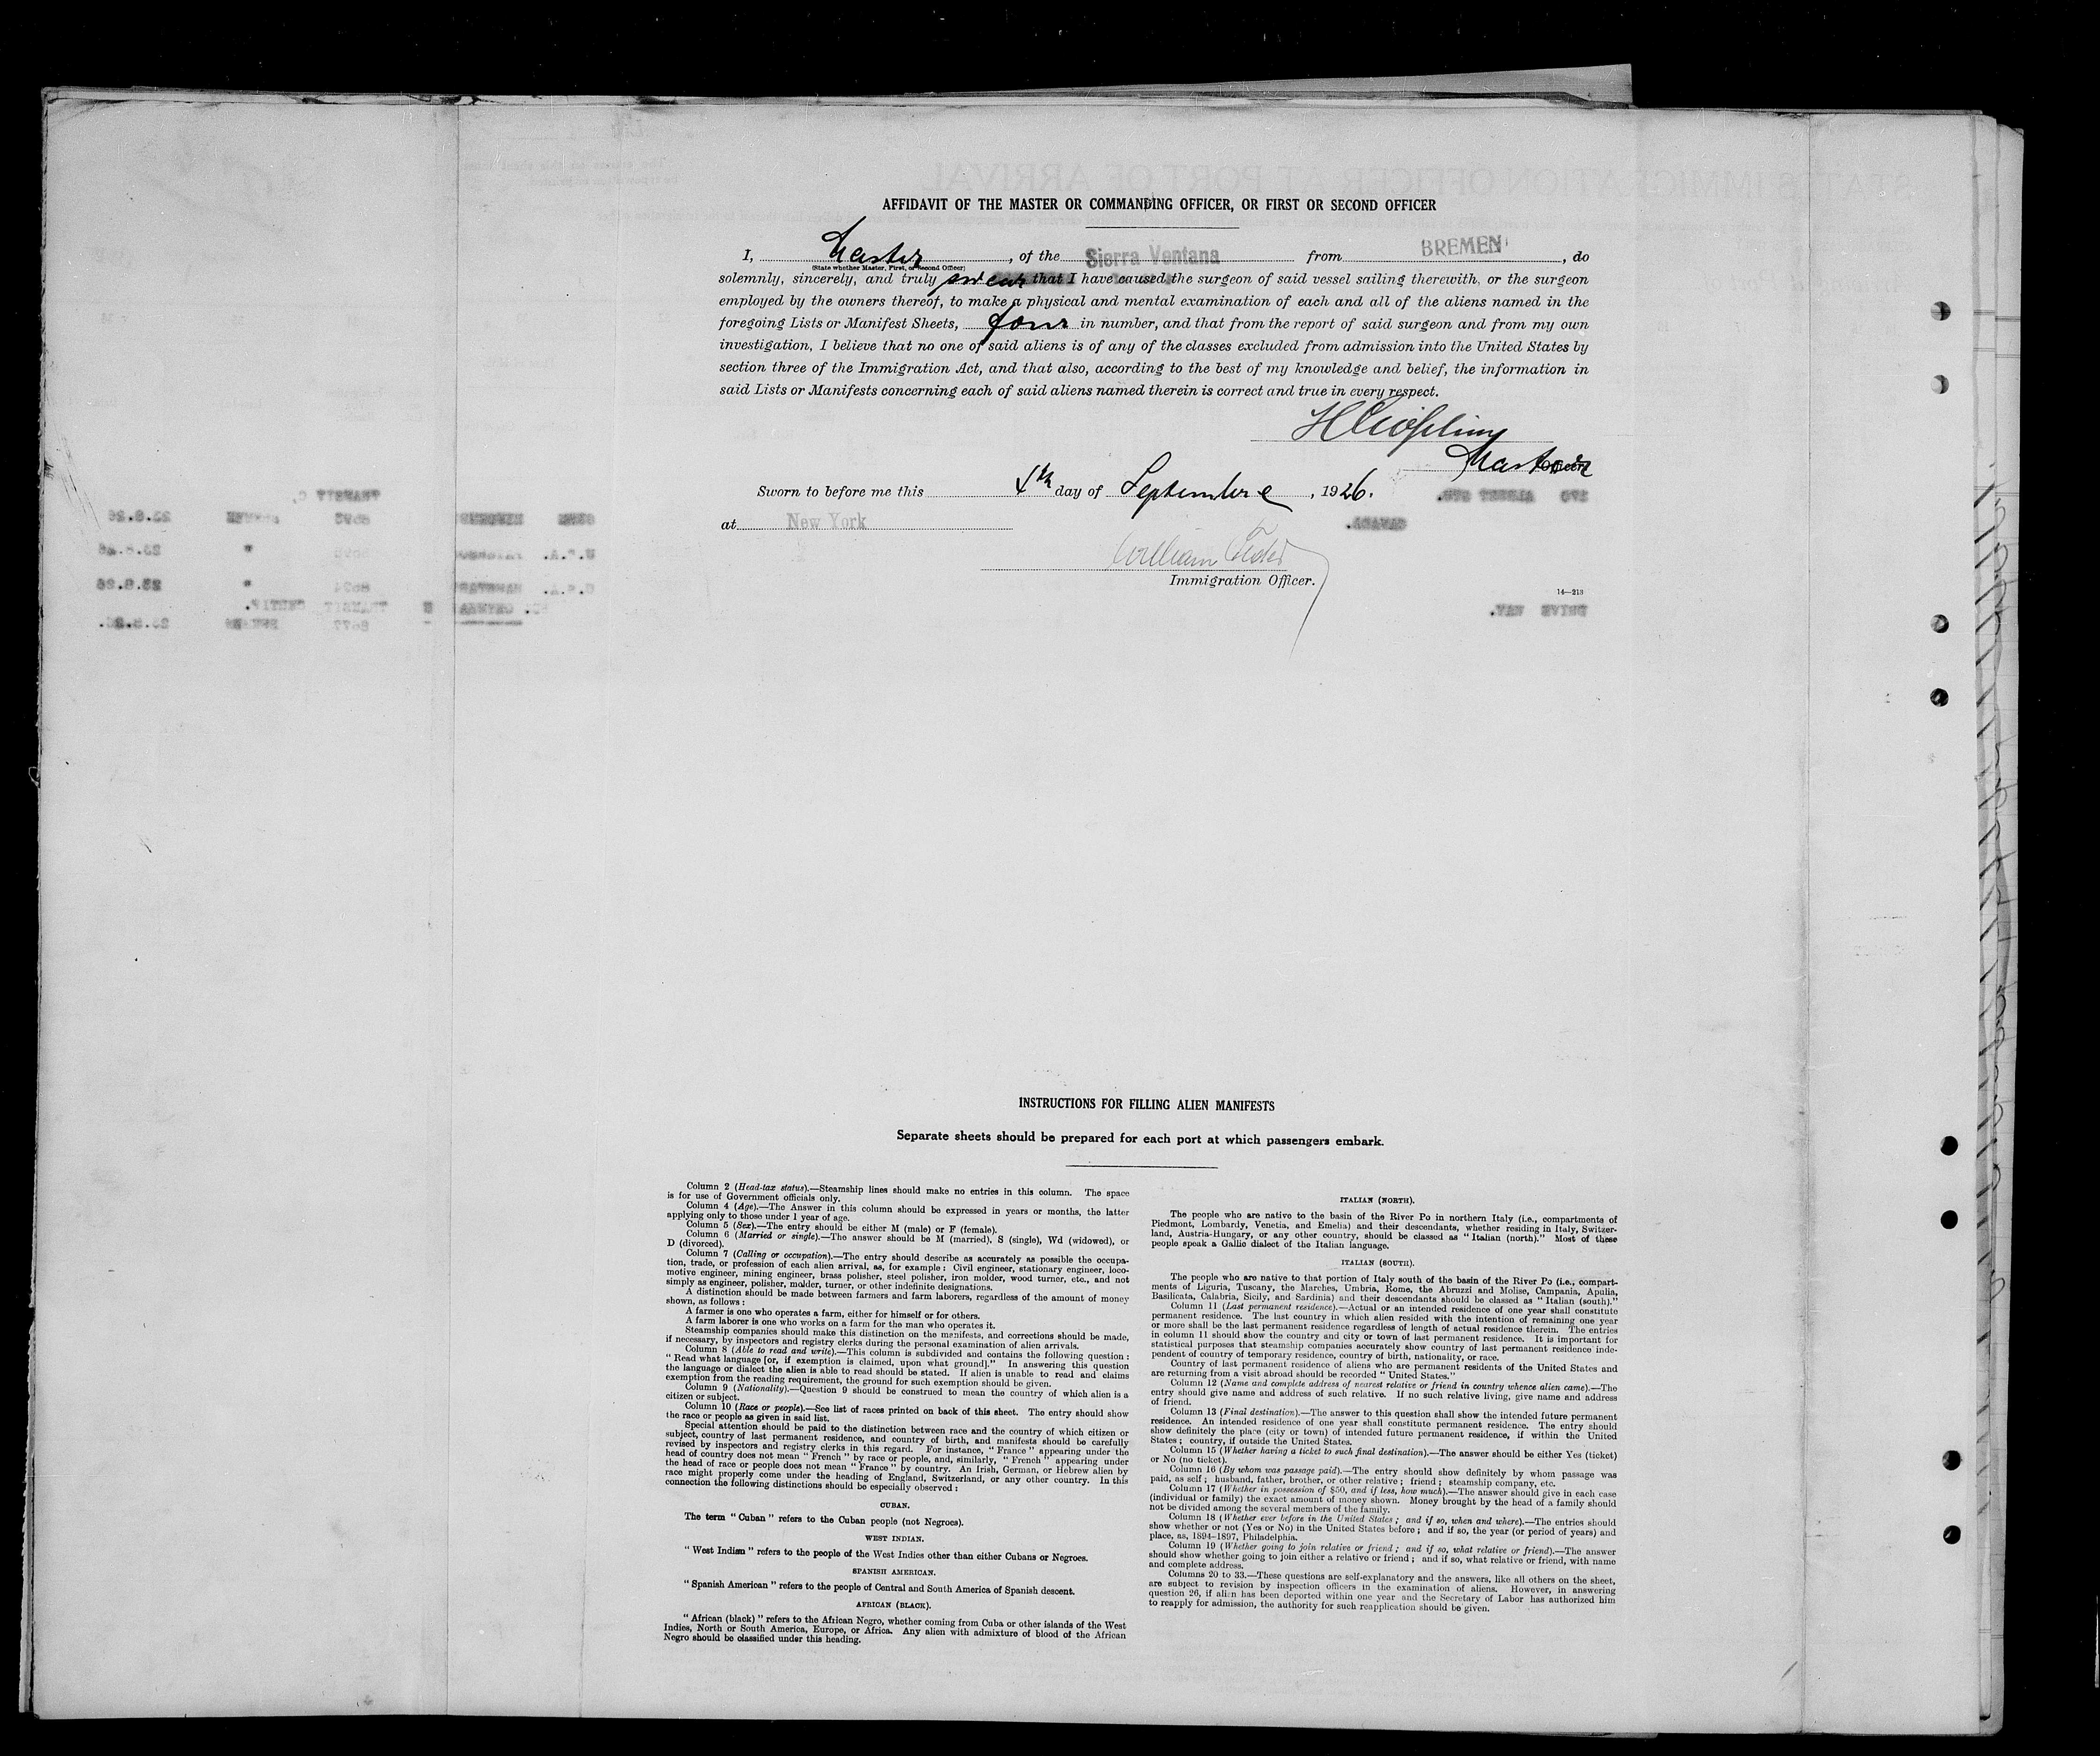 AFFIDAVIT OF THE MASTER OR COMMANDING OFFICER, OR FIRST OR SECOND OFFICER
I, Master, of the Sierra Ventana from BREMEN, do
(State whether Master, First, or Second Officer)
solemnly, sincerely, and truly swear that I have caused the surgeon of said vessel sailing therewith, or the surgeon
employed by the owners thereof, to make a physical and mental examination of each and all of the aliens named in the
foregoing Lists or Manifest Sheets, four in number, and that from the report of said surgeon and from my own
investigation, I believe that no one of said aliens is of any of the classes excluded from admission into the United States by
section three of the Immigration Act, and that also, according to the best of my knowledge and belief, the information in
said Lists or Manifests concerning each of said aliens named therein is correct and true in every respect.
Master
Officer.
Sworn to before me this 4th day of September, 1926.
at New York
William
Immigration Officer.
14—213
INSTRUCTIONS FOR FILLING ALIEN MANIFESTS
Separate sheets should be prepared for each port at which passengers embark.
Column 2 (Head-tax status).—Steamship lines should make no entries in this column. The space
is for use of Government officials only.
Column 4 (Age).—The Answer in this column should be expressed in years or months, the latter
applying only to those under 1 year of age.
Column 5 (Sex).—The entry should be either M (male) or F (female).
Column 6 (Married or single).—The answer should be M (married), S (single), Wd (widowed), or
D (divorced).
Column 7 (Calling or occupation).—The entry should describe as accurately as possible the occupa-
tion, trade, or profession of each alien arrival, as, for example: Civil engineer, stationary engineer, loco-
motive engineer, mining engineer, brass polisher, steel polisher, iron molder, wood turner, etc., and not
simply as engineer, polisher, molder, turner, or other indefinite designations.
A distinction should be made between farmers and farm laborers, regardless of the amount of money
shown, as follows:
A farmer is one who operates a farm, either for himself or for others.
A farm laborer is one who works on a farm for the man who operates it.
Steamship companies should make this distinction on the manifests, and corrections should be made,
if necessary, by inspectors and registry clerks during the personal examination of alien arrivals.
Column 8 (Able to read and write).—This column is subdivided and contains the following question:
"Read what language [or, if exemption is claimed, upon what ground]." In answering this question
the language or dialect the alien is able to read should be stated. If alien is unable to read and claims
exemption from the reading requirement, the ground for such exemption should be given.
Column 9 (Nationality).—Question 9 should be construed to mean the country of which alien is a
citizen or subject.
Column 10 (Race or people).—See list of races printed on back of this sheet. The entry should show
the race or people as given in said list.
Special attention should be paid to the distinction between race and the country of which citizen or
subject, country of last permanent residence, and country of birth, and manifests should be carefully
revised by inspectors and registry clerks in this regard. For instance, "France" appearing under the
head of country does not mean "French" by race or people, and, similarly, "French" appearing under
the head of race or people does not mean "France" by country. An Irish, German, or Hebrew alien by
race might properly come under the heading of England, Switzerland, or any other country. In this
connection the following distinctions should be especially observed:
CUBAN.
The term "Cuban" refers to the Cuban people (not Negroes).
WEST INDIAN.
"West Indian" refers to the people of the West Indies other than either Cubans or Negroes.
SPANISH AMERICAN.
"Spanish American" refers to the people of Central and South America of Spanish descent.
AFRICAN (BLACK).
"African (black)" refers to the African Negro, whether coming from Cuba or other islands of the West
Indies, North or South America, Europe, or Africa. Any alien with admixture of blood of the African
Negro should be classified under this heading.
ITALIAN (NORTH).
The people who are native to the basin of the River Po in northern Italy (i.e., compartments of
Piedmont, Lombardy, Venetia, and Emelia) and their descendants, whether residing in Italy, Switzer-
land, Austria-Hungary, or any other country, should be classed as "Italian (north)." Most of these
people speak a Gallic dialect of the Italian language.
ITALIAN (SOUTH).
The people who are native to that portion of Italy south of the basin of the River Po (i.e., compart-
ments of Liguria, Tuscany, the Marches, Umbria, Rome, the Abruzzi and Molise, Campania, Apulia,
Basilicata, Calabria, Sicily, and Sardinia) and their descendants should be classed as "Italian (south)."
Column 11 (Last permanent residence).—Actual or an intended residence of one year shall constitute
permanent residence. The last country in which alien resided with the intention of remaining one year
or more shall be the last permanent residence regardless of length of actual residence therein. The entries
in column 11 should show the country and city or town of last permanent residence. It is important for
statistical purposes that steamship companies accurately show country of last permanent residence inde-
pendent of country of temporary residence, country of birth, nationality, or race.
Country of last permanent residence of aliens who are permanent residents of the United States and
are returning from a visit abroad should be recorded "United States."
Column 12 (Name and complete address of nearest relative or friend in country whence alien came).—The
entry should give name and address of such relative. If no such relative living, give name and address
of friend.
Column 13 (Final destination).—The answer to this question shall show the intended future permanent
residence. An intended residence of one year shall constitute permanent residence. The entry should
show definitely the place (city or town) of intended future permanent residence, if within the United
States; country, if outside the United States.
Column 15 (Whether having a ticket to such final destination).—The answer should be either Yes (ticket)
or No (no ticket).
Column 16 (By whom was passage paid).—The entry should show definitely by whom passage was
paid, as self; husband, father, brother, or other relative; friend; steamship company, etc.
Column 17 (Whether in possession of $50, and if less, how much).—The answer should give in each case
(individual or family) the exact amount of money shown. Money brought by the head of a family should
not be divided among the several members of the family.
Column 18 (Whether ever before in the United States; and if so, when and where).—The entries should
show whether or not (Yes or No) in the United States before; and if so, the year (or period of years) and
place, as, 1894-1897, Philadelphia.
Column 19 (Whether going to join relative or friend; and if so, what relative or friend).—The answer
should show whether going to join either a relative or friend; and if so, what relative or friend, with name
and complete address.
Columns 20 to 33.—These questions are self-explanatory and the answers, like all others on the sheet,
are subject to revision by inspection officers in the examination of aliens. However, in answering
question 26, if alien has been deported within one year and the Secretary of Labor has authorized him
to reapply for admission, the authority for such reapplication should be given.